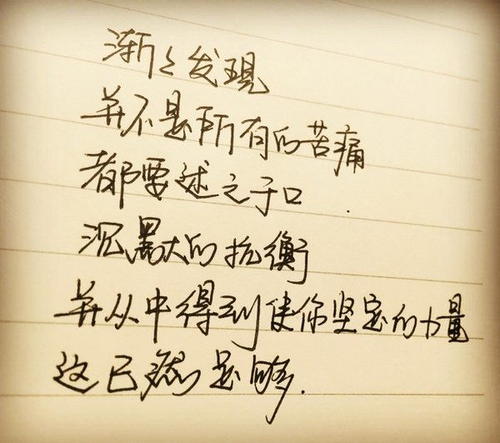 渐々发現
并不是所有的苦痛
都要述之于口.
沉默的抗衡
并从中得到使你坚定的力量
这已然足够.